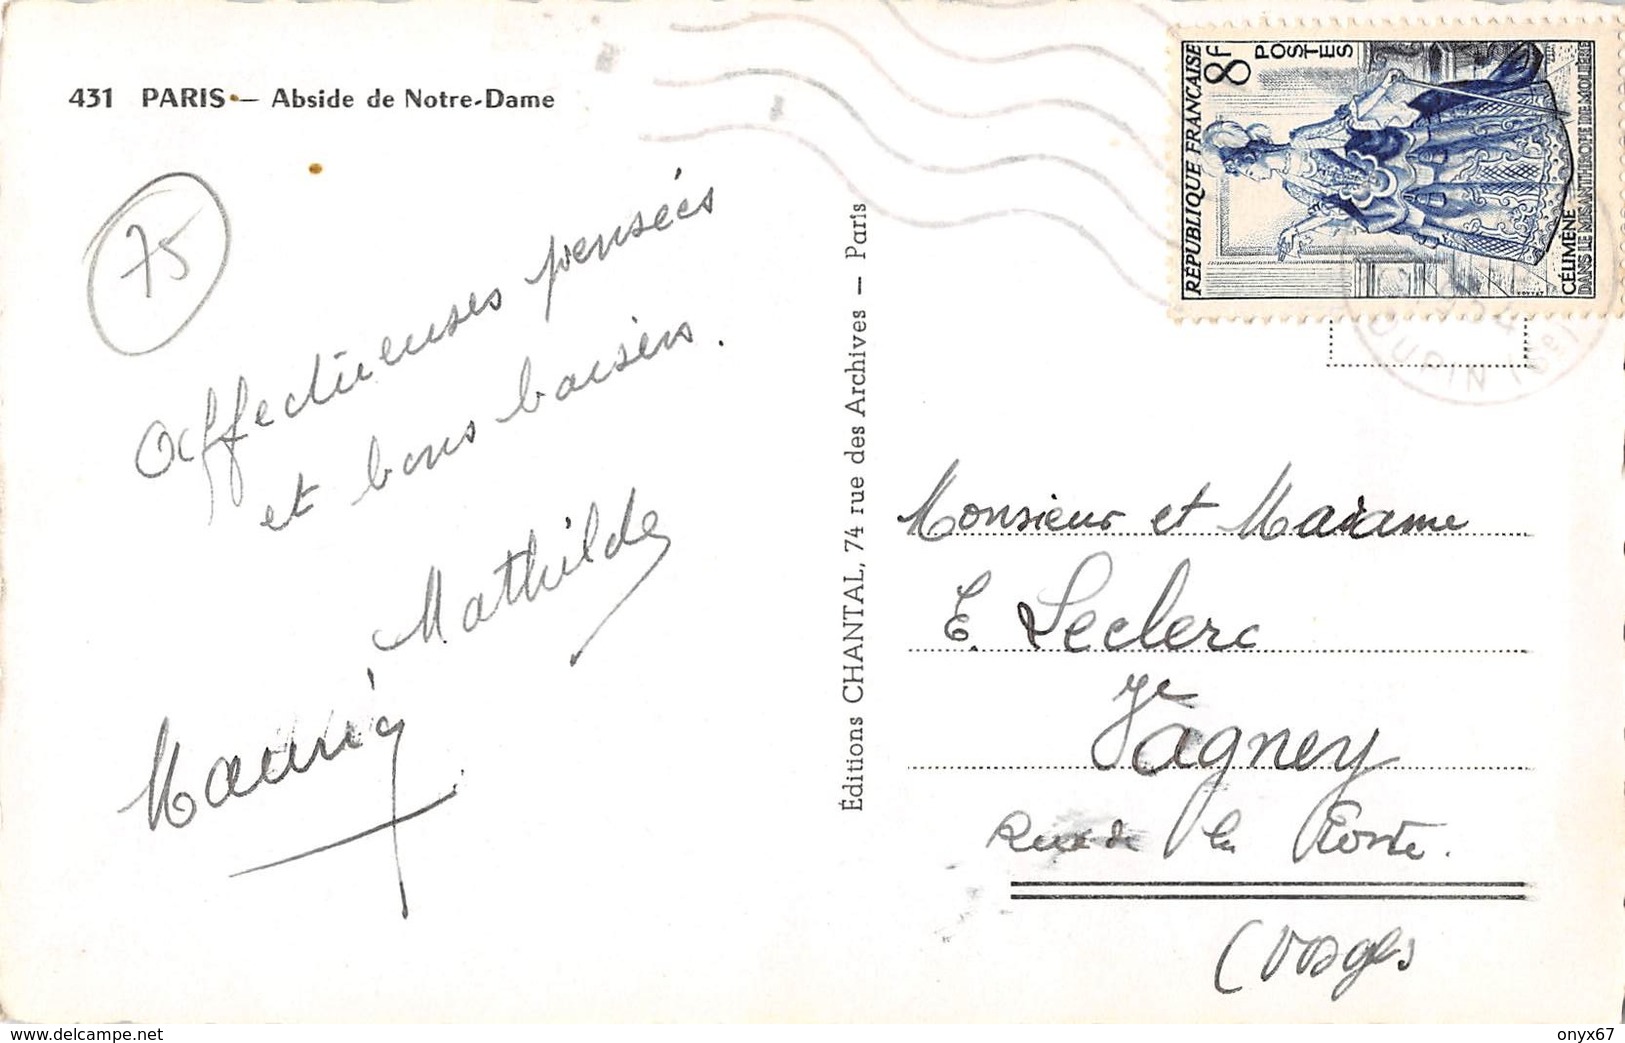 431 PARIS — Abside de Notre-Dame
75
Affectueuses pensées
et bons baisers.
Mathilde
Éditions CHANTAL, 74 rue des Archives — Paris
RÉPUBLIQUE FRANÇAISE
8F
POSTES
CÉLIMÈNE
DANS LE MISANTHROPE DE MOLIÈRE
Monsieur et Madame
E. Leclerc
Vagney
Rue de la Poste.
(Vosges
www.delcampe.net
onyx67